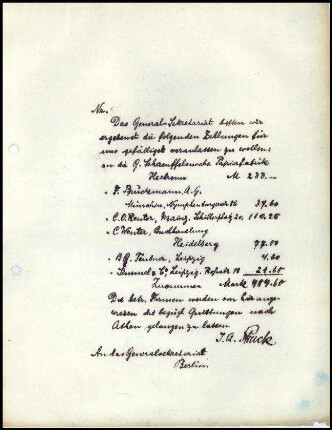 Das General-Sekretariat bitten wir
ergebenst die folgenden Zahlungen für
uns gefälligst veranlassen zu wollen:
an die G. Schaeuffelensche Papierfabrik
Heilbronn M 233.—
" F. Bruckmann A.G.
München, Nymphenburgerstr 37.60
" C.O. Reuter, Mainz,
" C. Winter, Buchhandlung
Heidelberg 77.50
" B.G. Teubner, Leipzig 4.60
Leipzig, 21.60
Zusammen Mark
Die betr. Firmen werden von hier ange-
wiesen die bezügl. Quittungen nach
Athen gelangen zu lassen.
I.A.
An das Generalsekretariat
Berlin.